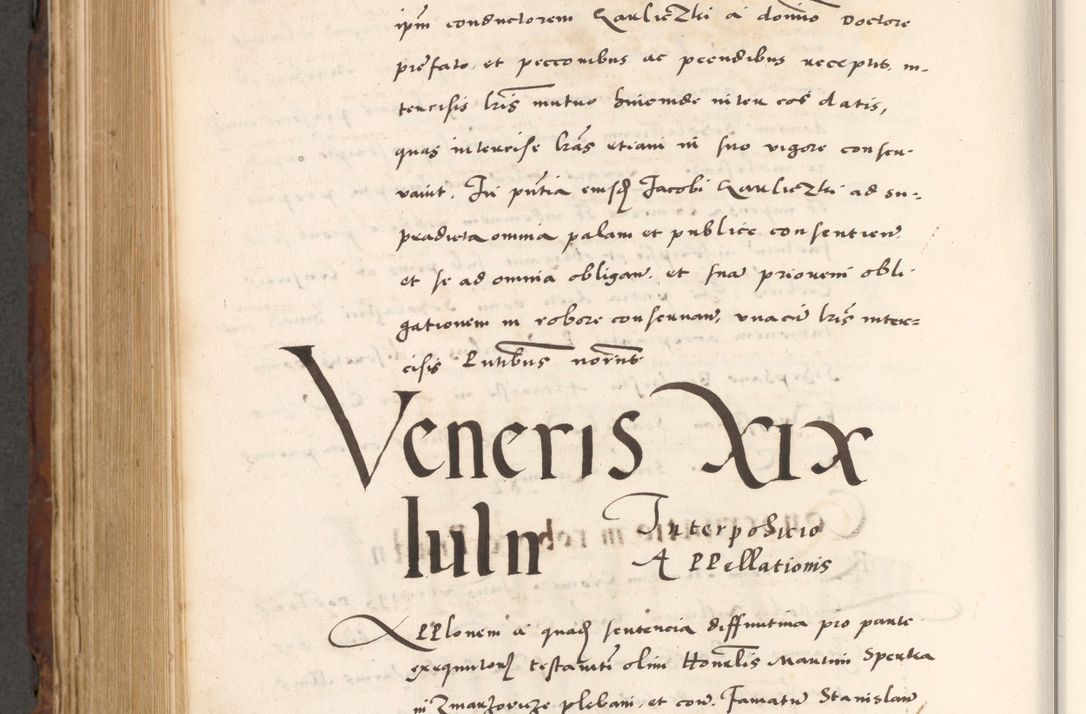 ipm conductorem Gawliczki a domino Doctore
prefato et peccoribus ac pecudibus receptis, in-
tercisis lris mutuo huiusmodi inter eos datis,
quas intercise lras etiam in suo vigore conser-
vavit. In pntia eiusq Jacobi Gawliczki ad su-
pradicta omnia palam et publice consentien
et se ad omnia obligan. et sua priorem obli-
gationem in robore conseruan, vnacu lris inter-
cisis
Veneris XIX
Iulii
Interposicio
Appellationis
Applonem a quadq sentencia diffinitiua pro parte
exequutorq testamti olim Honrlis Martini Sperka
in plebani, et con. Famatu Stanislaw